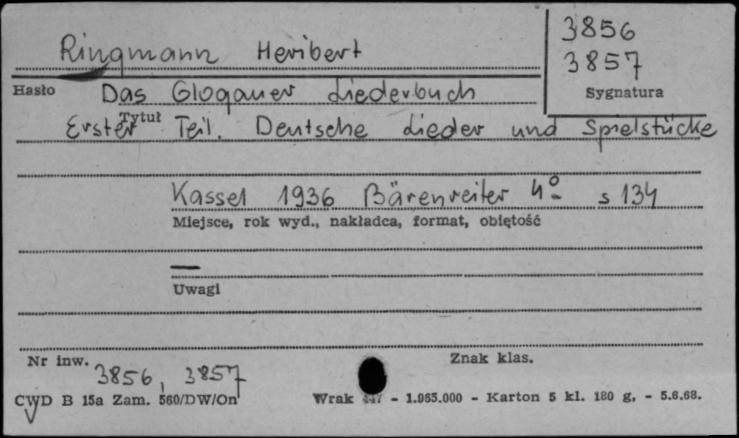 Ringmann Heribert
3856
3857
Hasło
Sygnatura
Das Glogauer Liederbuch
Tytuł
Erster Teil. Deutsche Lieder und Spielstücke
Kassel 1936 Bärenreiter 4º s 134
Miejsce, rok wyd., nakładca, format, obiętość
—
Uwagi
Nr inw. 3856, 3857
Znak klas.
CWD B 15a Zam. 560/DW/On
Wrak - 1.965.000 - Karton 5 kl. 180 g. - 5.6.68.